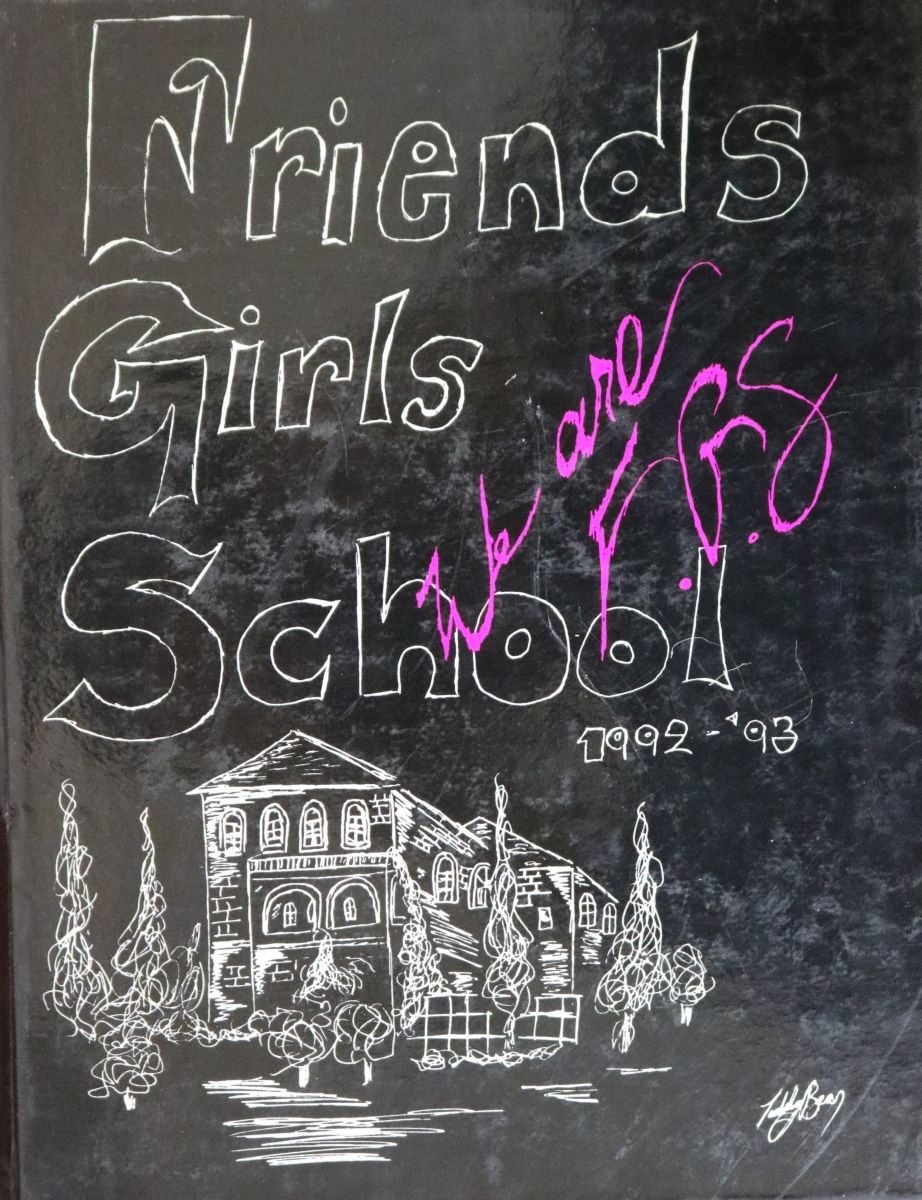 Friends
Girls
School
We are F.G.S
1992-'93
Teddy Bear